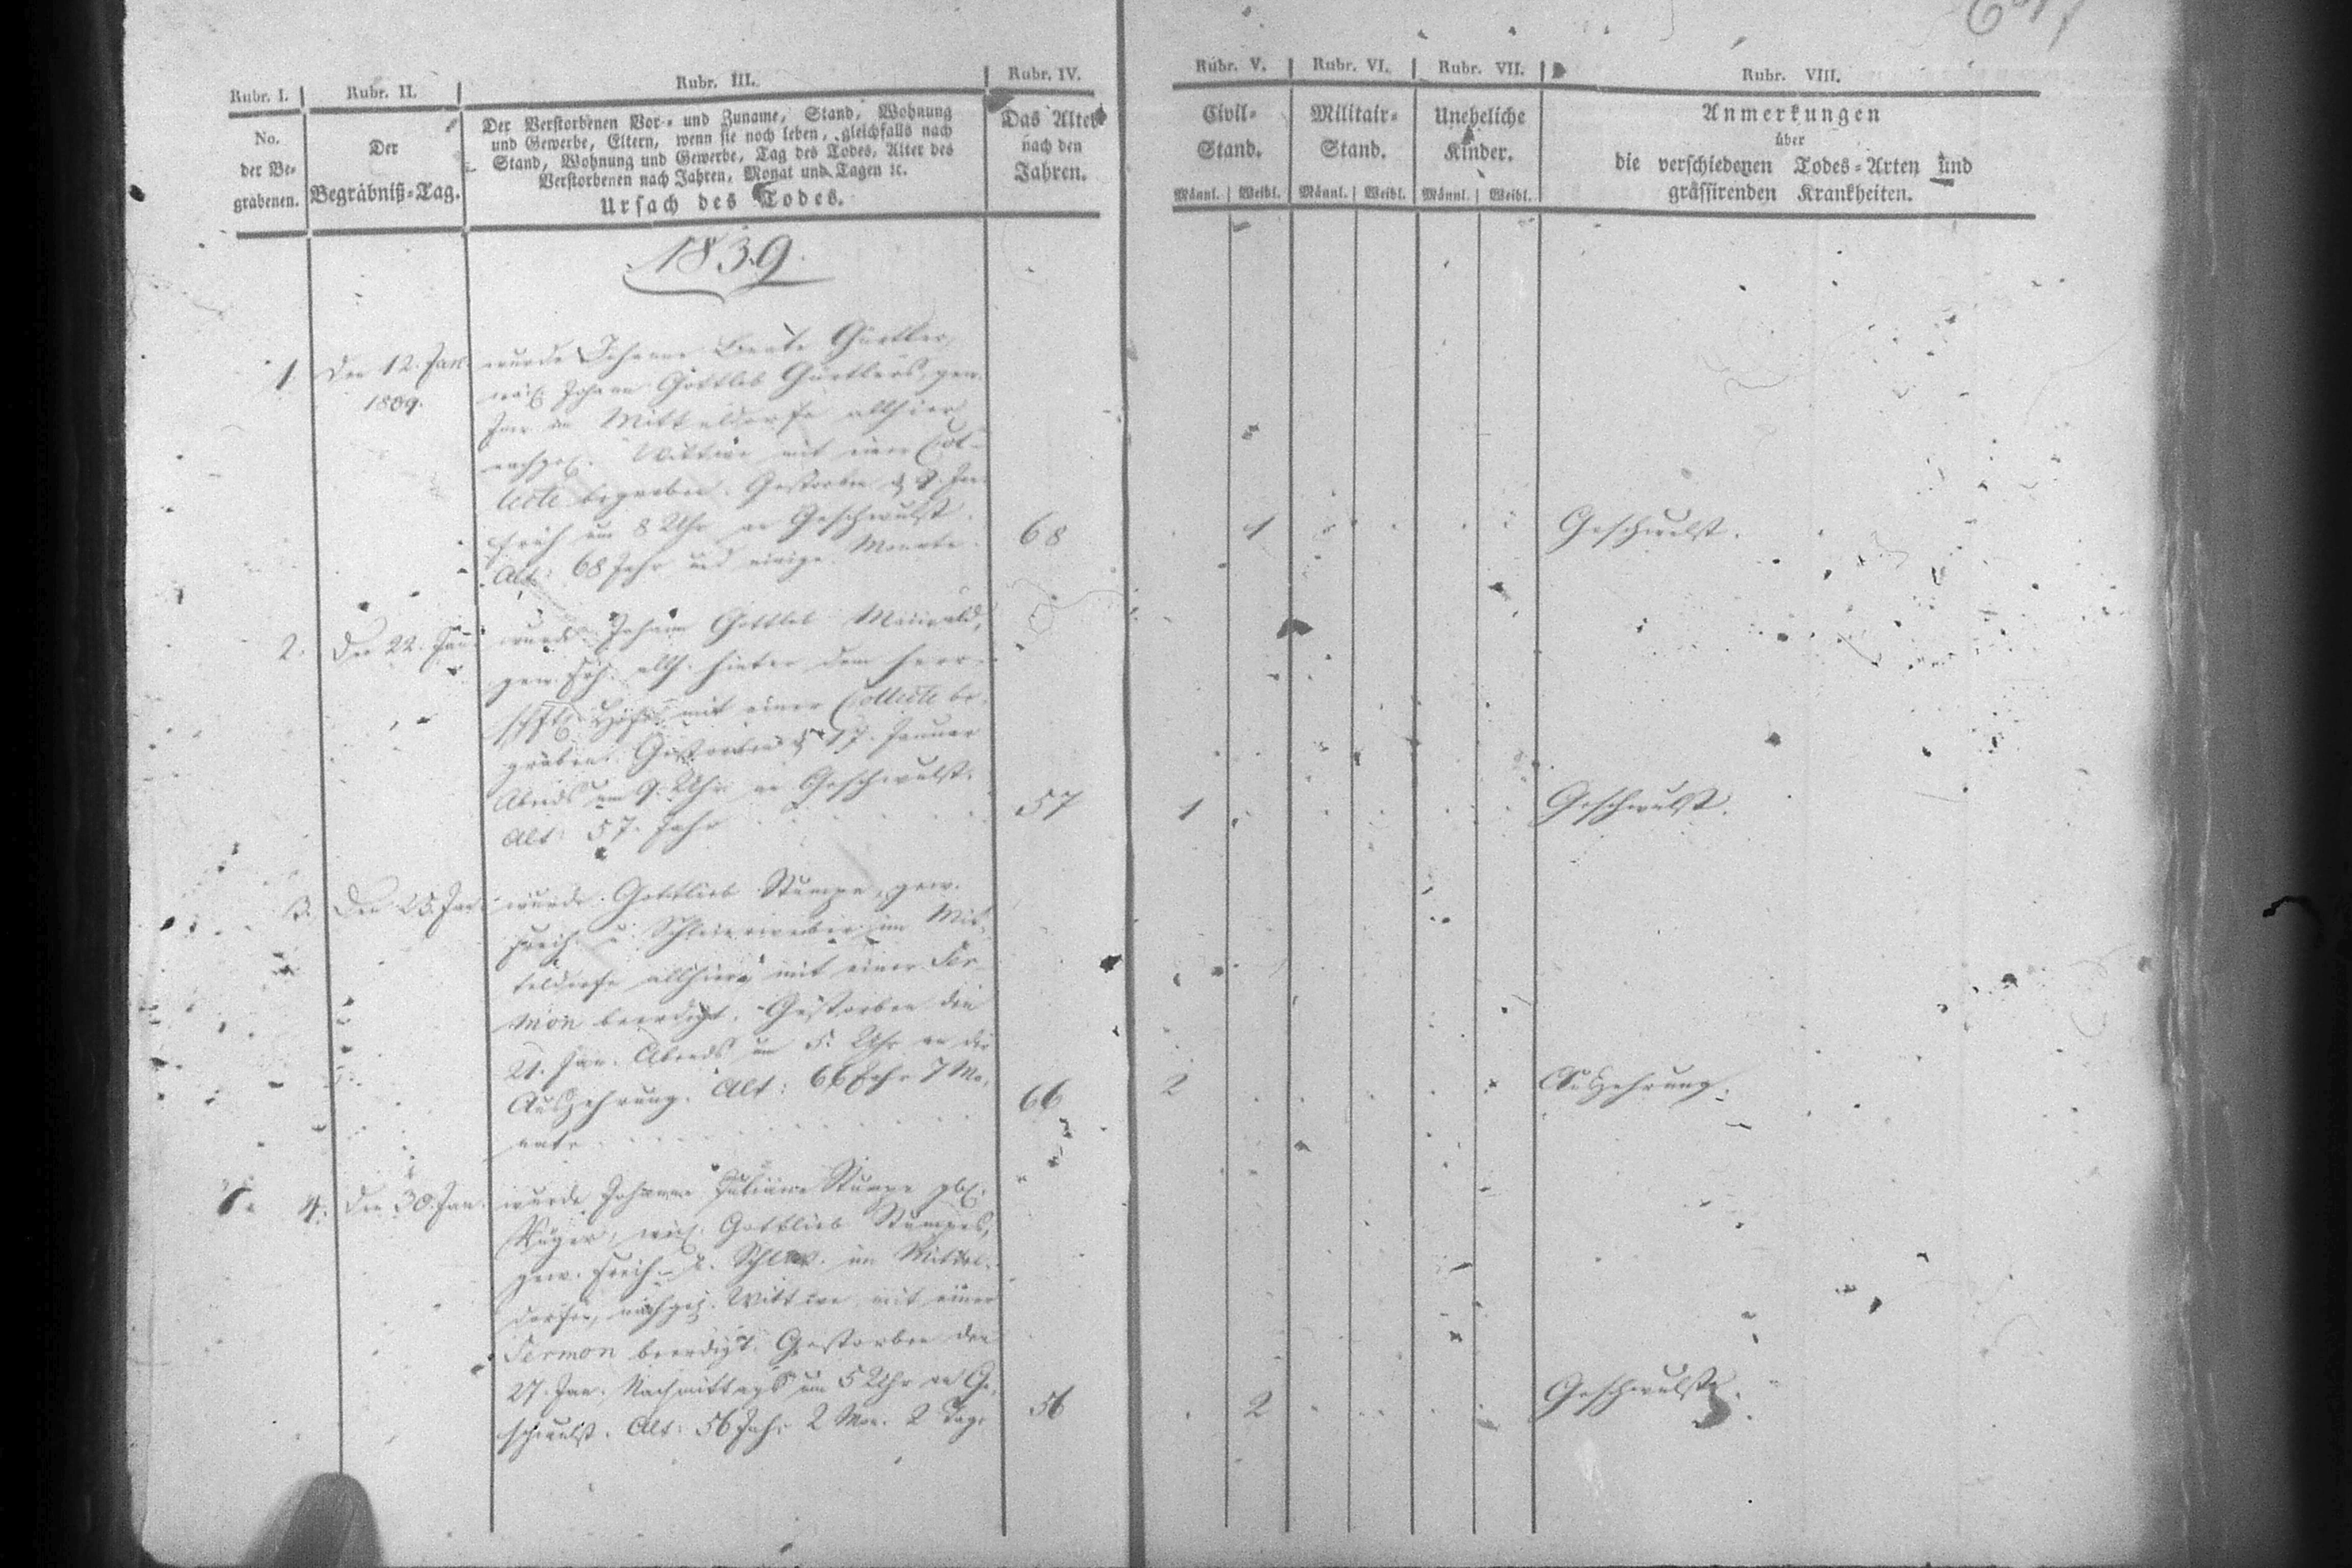 Rubr. I.
No.
der Be-
grabenen.
Rubr. II.
Der
Begräbniß-Tag.
Rubr. III.
Der Verstorbenen Vor- und Zuname, Stand, Wohnung
und Gewerbe, Eltern, wenn sie noch leben, gleichfalls nach
Stand, Wohnung und Gewerbe, Tag des Todes, Alter des
Verstorbenen nach Jahren, Monat und Tagen ꝛc.
Ursach des Todes.
Rubr. IV.
Das Alter
nach den
Jahren.
Rubr. V.
Civil-
Stand.
Männl. Weibl.
Rubr. VI.
Militair-
Stand.
Männl. Weibl.
Rubr. VII.
Uneheliche
Kinder.
Männl. Weibl.
Rubr. VIII.
Anmerkungen
über
die verschiedenen Todes-Arten und
grassirenden Krankheiten.
1839.
1. Den 12. Jan.
1839.
wurde Johanne Beate Gürtler,
weil. Johann Gottlob Gürtlers, gew.
im Mitteldorfe allhier
nachgel. Wittwe mit einer Col-
lecte begraben. Gestorben d. 9. Jan.
früh um 8 Uhr an Geschwulst.
Alt: 68 Jahr und einige Monate.
68
1
Geschwulst.
2. Den 22. Jan.
wurde Johann Gottlob Maiwald,
gew. allh. hinter dem herr-
schftl. Hofe mit einer Collecte be-
graben. Gestorben d. 17. Januar
Abends um 9. Uhr an Geschwulst.
Alt: 57. Jahr
57
1
Geschwulst.
3. Den 25. Jan.
wurde Gottlieb Stumpe, gew.
Freih. u. Schleierweber im Mit-
teldorfe allhier mit einer Ser-
mon beerdigt. Gestorben den
21. Jan. Abends um 5. Uhr an der
Auszehrung. Alt: 66 Jahr 7 Mo-
nate
66
2
Auszehrung.
4. Den 30. Jan.
wurde Johanne Juliane Stumpe gb.
Krüger, weil. Gottlieb Stumpes,
gew. Freih. u. im Mittel-
dorfe, nachgel. Wittwe mit einer
Sermon beerdigt. Gestorben den
27. Jan. Nachmittags um 5 Uhr an Ge-
schwulst. Alt: 56 Jahr 2 Mon. 2 Tage
56
2
Geschwulst.